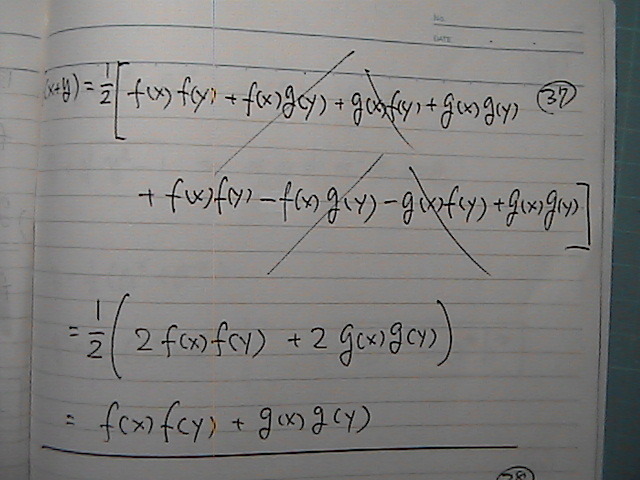 NO.
DATE
(x+y) = 1/2 [ f(x) f(y) + f(x) g(y) + g(x) f(y) + g(x) g(y) (37)
+ f(x) f(y) - f(x) g(y) - g(x) f(y) + g(x) g(y) ]
= 1/2 ( 2 f(x) f(y) + 2 g(x) g(y) )
= f(x) f(y) + g(x) g(y)